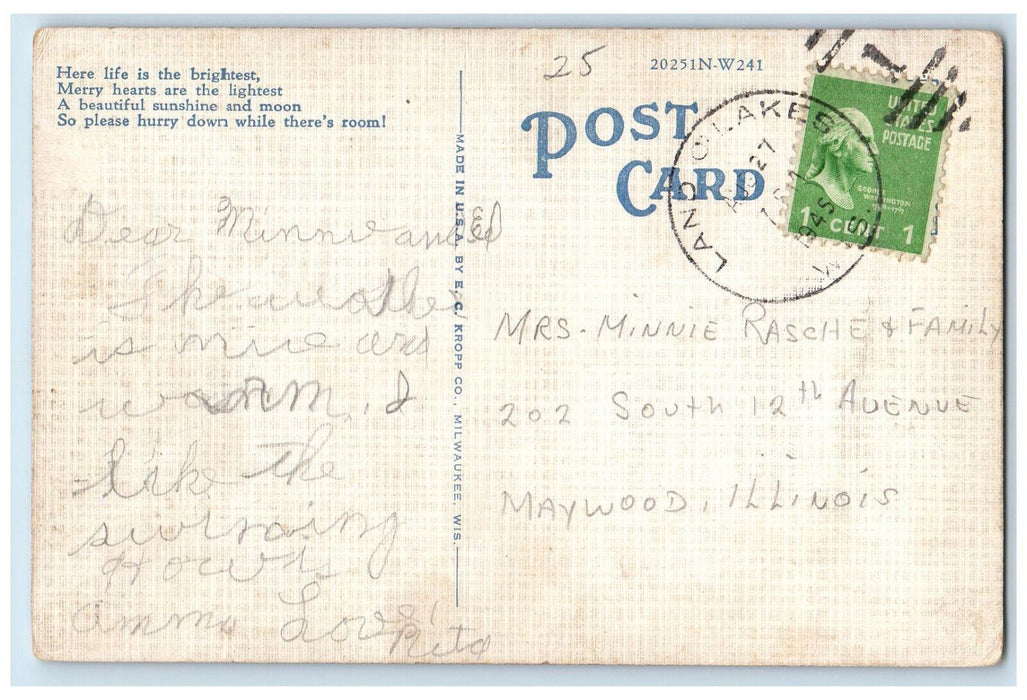 Here life is the brightest,
Merry hearts are the lightest
A beautiful sunshine and moon
So please hurry down while there's room!
Dear Minnie and Ed
The weather
is nice and
warm. I
like the
swimming
How's
Love
Rita
MADE IN U.S.A. BY E. C. KROPP CO., MILWAUKEE, WIS.
25
20251N-W241
POST
CARD
LAND O'LAKES
AUG 27
1945
WIS.
UNITED
STATES
POSTAGE
GEORGE
WASHINGTON
1 CENT 1
MRS. MINNIE RASCHE & FAMILY
202 SOUTH 12th AVENUE
MAYWOOD, ILLINOIS